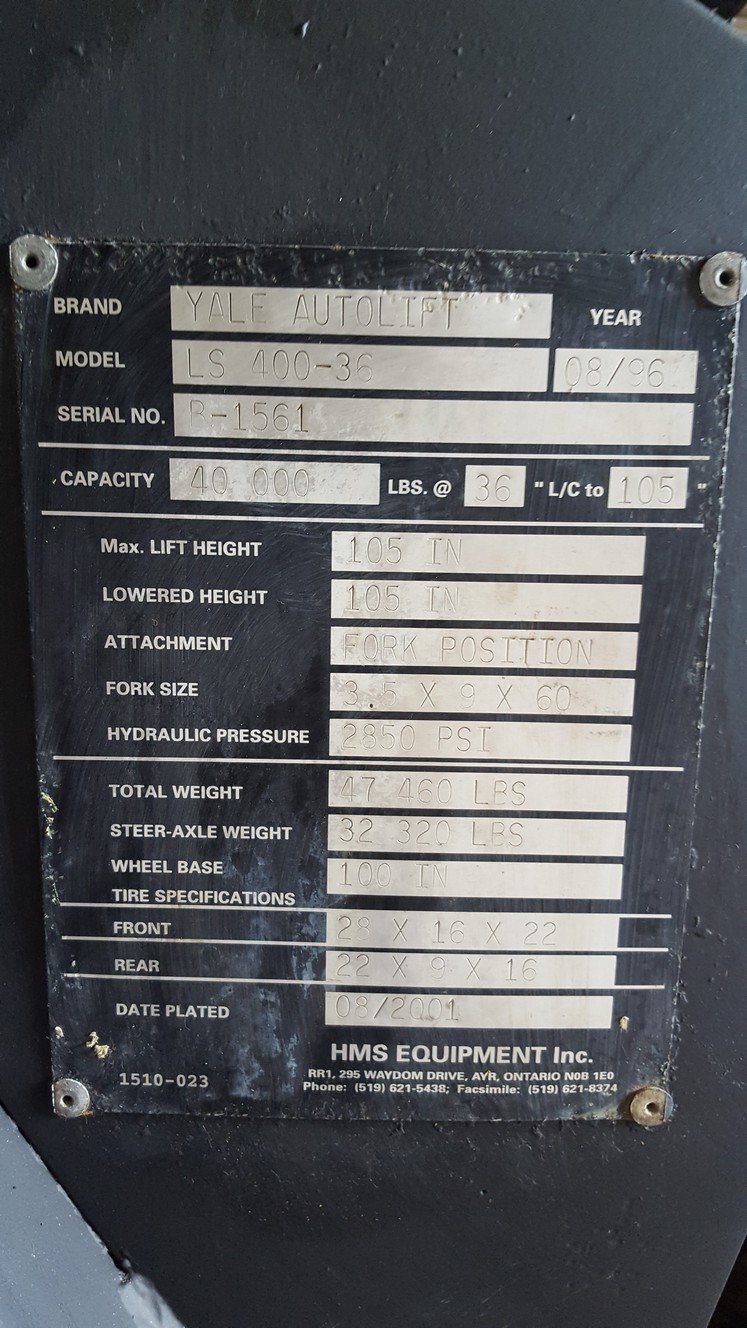 BRAND YALE AUTOLIFT YEAR
MODEL LS 400-36 08/96
SERIAL NO. B-1561
CAPACITY 40 000 LBS. @ 36 " L/C to 105 "
Max. LIFT HEIGHT 105 IN
LOWERED HEIGHT 105 IN
ATTACHMENT FORK POSITION
FORK SIZE 3.5 X 9 X 60
HYDRAULIC PRESSURE 2850 PSI
TOTAL WEIGHT 47 460 LBS
STEER-AXLE WEIGHT 32 320 LBS
WHEEL BASE 100 IN
TIRE SPECIFICATIONS
FRONT 28 X 16 X 22
REAR 22 X 9 X 16
DATE PLATED 08/2001
HMS EQUIPMENT Inc.
RR1, 295 WAYDOM DRIVE, AYR, ONTARIO N0B 1E0
1510-023 Phone: (519) 621-5438; Facsimile: (519) 621-8374